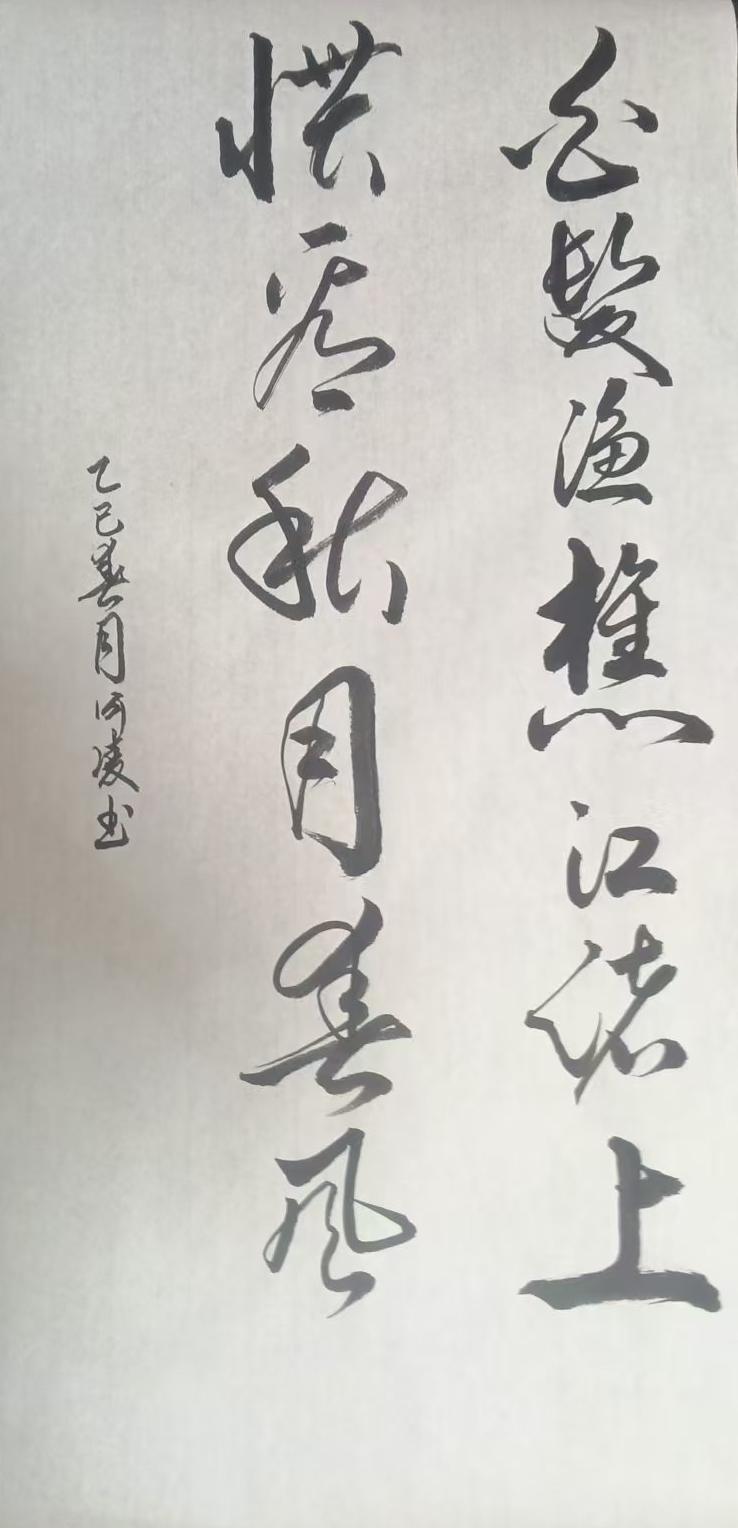 白髮渔樵江渚上
惯看秋月春风
乙巳春月河凌书